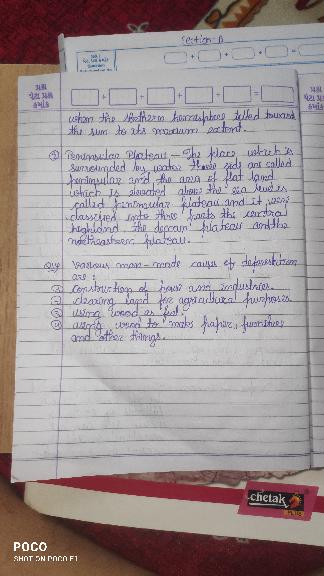 Section-A
+ + + + =
when the Northern hemisphere tilted toward
the sun to its maximum extent.
Peninsular Plateau - The place which is
surrounded by water three side are called
peninsular and the area of flat land
which is elevated above the sea level is
called peninsular plateau and it
classified into three parts the central
highland the deccan plateau and the
northeastern plateau.
Various man-made cause of deforestation
are :
construction of and industries.
clearing land for agricultural purposes
using wood as fuel.
using wood to make paper, furnitures
and other things.
chetak
PLUS
POCO
SHOT ON POCO F1